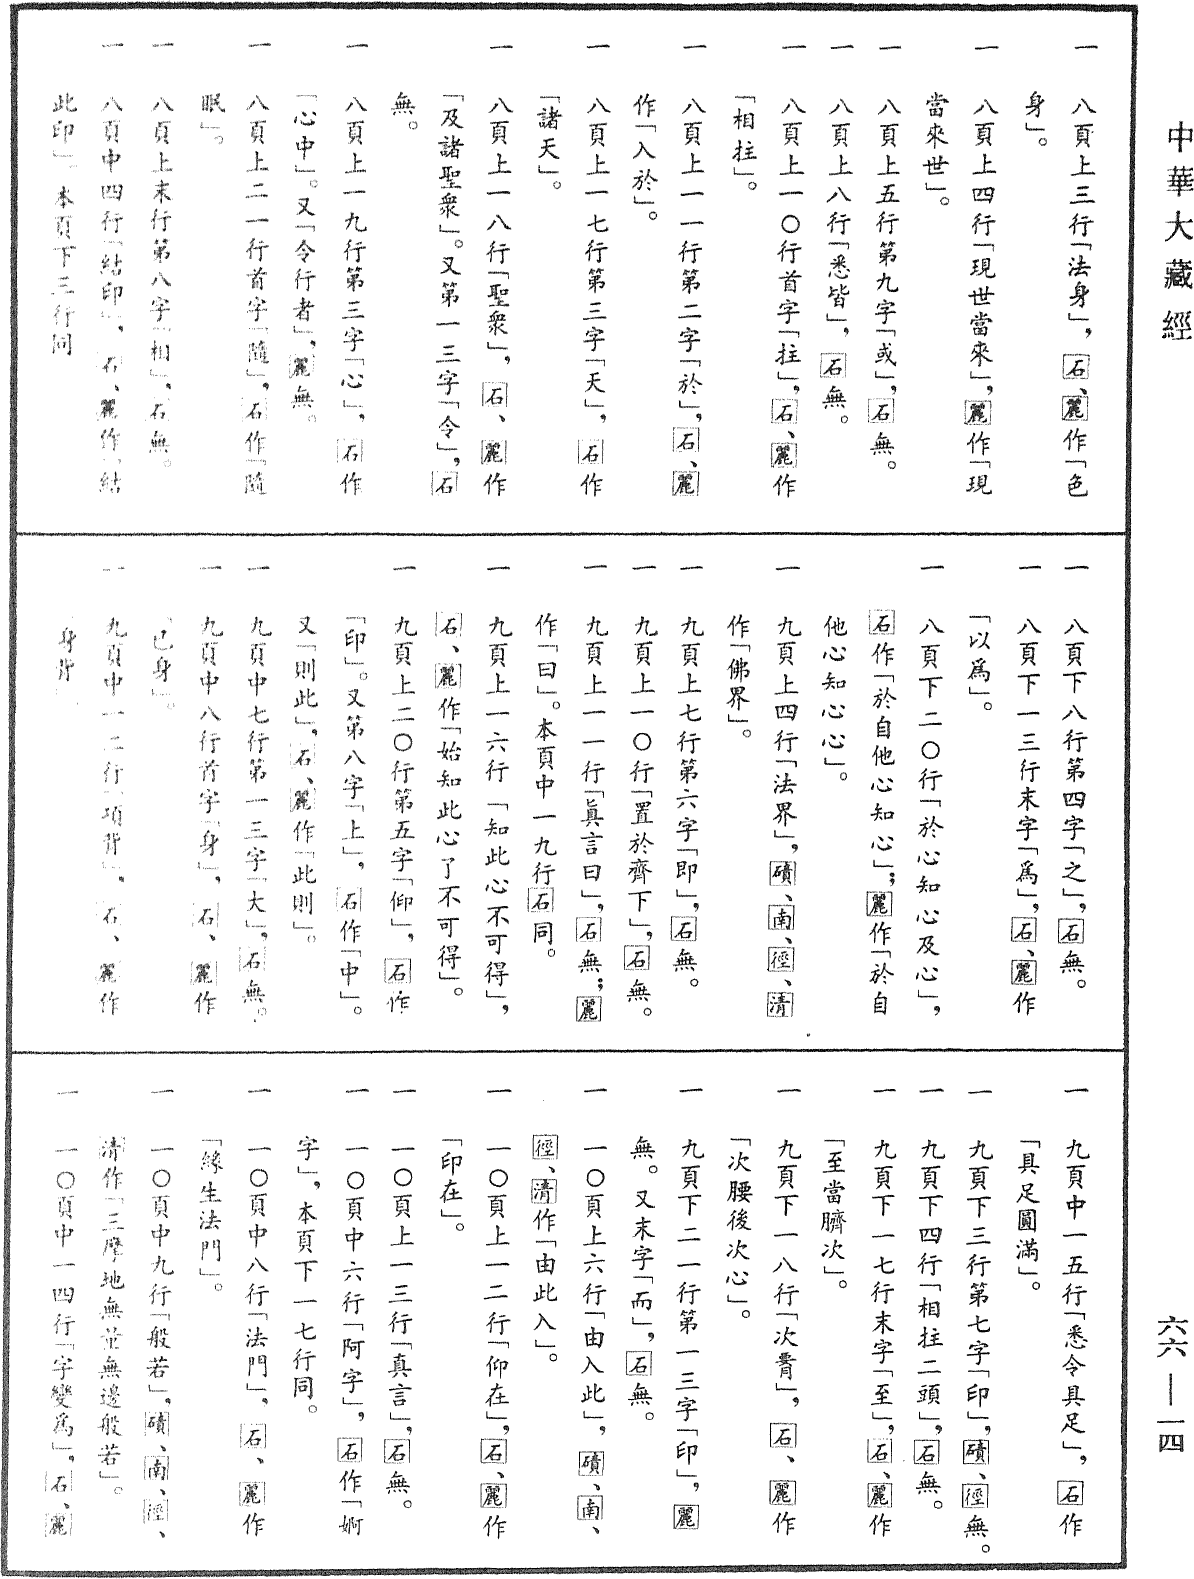 中華大藏經
一　八頁上三行「法身」，石、麗作「色
身」。
一　八頁上四行「現世當來」，麗作「現
當來世」。
一　八頁上五行第九字「或」，石無。
一　八頁上八行「悉皆」，石無。
一　八頁上一〇行首字「拄」，石、麗作
「相拄」。
一　八頁上一一行第二字「於」，石、麗
作「入於」。
一　八頁上一七行第三字「天」，石作
「諸天」。
一　八頁上一八行「聖衆」，石、麗作
「及諸聖衆」。又第一三字「令」，石
無。
一　八頁上一九行第三字「心」，石作
「心中」。又「令行者」，麗無。
一　八頁上二一行首字「隨」，石作「隨
眠」。
一　八頁上末行第八字「相」，石無。
一　八頁中四行「結印」，石、麗作「結
此印」，本頁下三行同
一　八頁下八行第四字「之」，石無。
一　八頁下一三行末字「爲」，石、麗作
「以爲」。
一　八頁下二〇行「於心知心及心」，
石作「於自他心知心」；麗作「於自
他心知心心」。
一　九頁上四行「法界」，磧、南、徑、清
作「佛界」。
一　九頁上七行第六字「即」，石無。
一　九頁上一〇行「置於齊下」，石無。
一　九頁上一一行「眞言曰」，石無；麗
作「曰」。本頁中一九行石同。
一　九頁上一六行「知此心不可得」，
石、麗作「始知此心了不可得」。
一　九頁上二〇行第五字「仰」，石作
「印」。又第八字「上」，石作「中」。
又「則此」，石、麗作「此則」。
一　九頁中七行第一三字「大」，石無。
一　九頁中八行首字「身」，石、麗作
「己身」。
一　九頁中一二行「項背」，石、麗作
「身背」
一　九頁中一五行「悉令具足」，石作
「具足圓滿」。
一　九頁下三行第七字「印」，磧、徑無。
一　九頁下四行「相拄二頭」，石無。
一　九頁下一七行末字「至」，石、麗作
「至當臍次」。
一　九頁下一八行「次膂」，石、麗作
「次腰後次心」。
一　九頁下二一行第一三字「印」，麗
無。又末字「而」，石無。
一　一〇頁上六行「由入此」，磧、南、
徑、清作「由此入」。
一　一〇頁上一二行「仰在」，石、麗作
「印在」。
一　一〇頁上一三行「真言」，石無。
一　一〇頁中六行「阿字」，石作「婀
字」，本頁下一七行同。
一　一〇頁中八行「法門」，石、麗作
「緣生法門」。
一　一〇頁中九行「般若」，磧、南、徑、
清作「三摩地無量無邊般若」。
一　一〇頁中一四行「字變爲」，石、麗
六六——一四